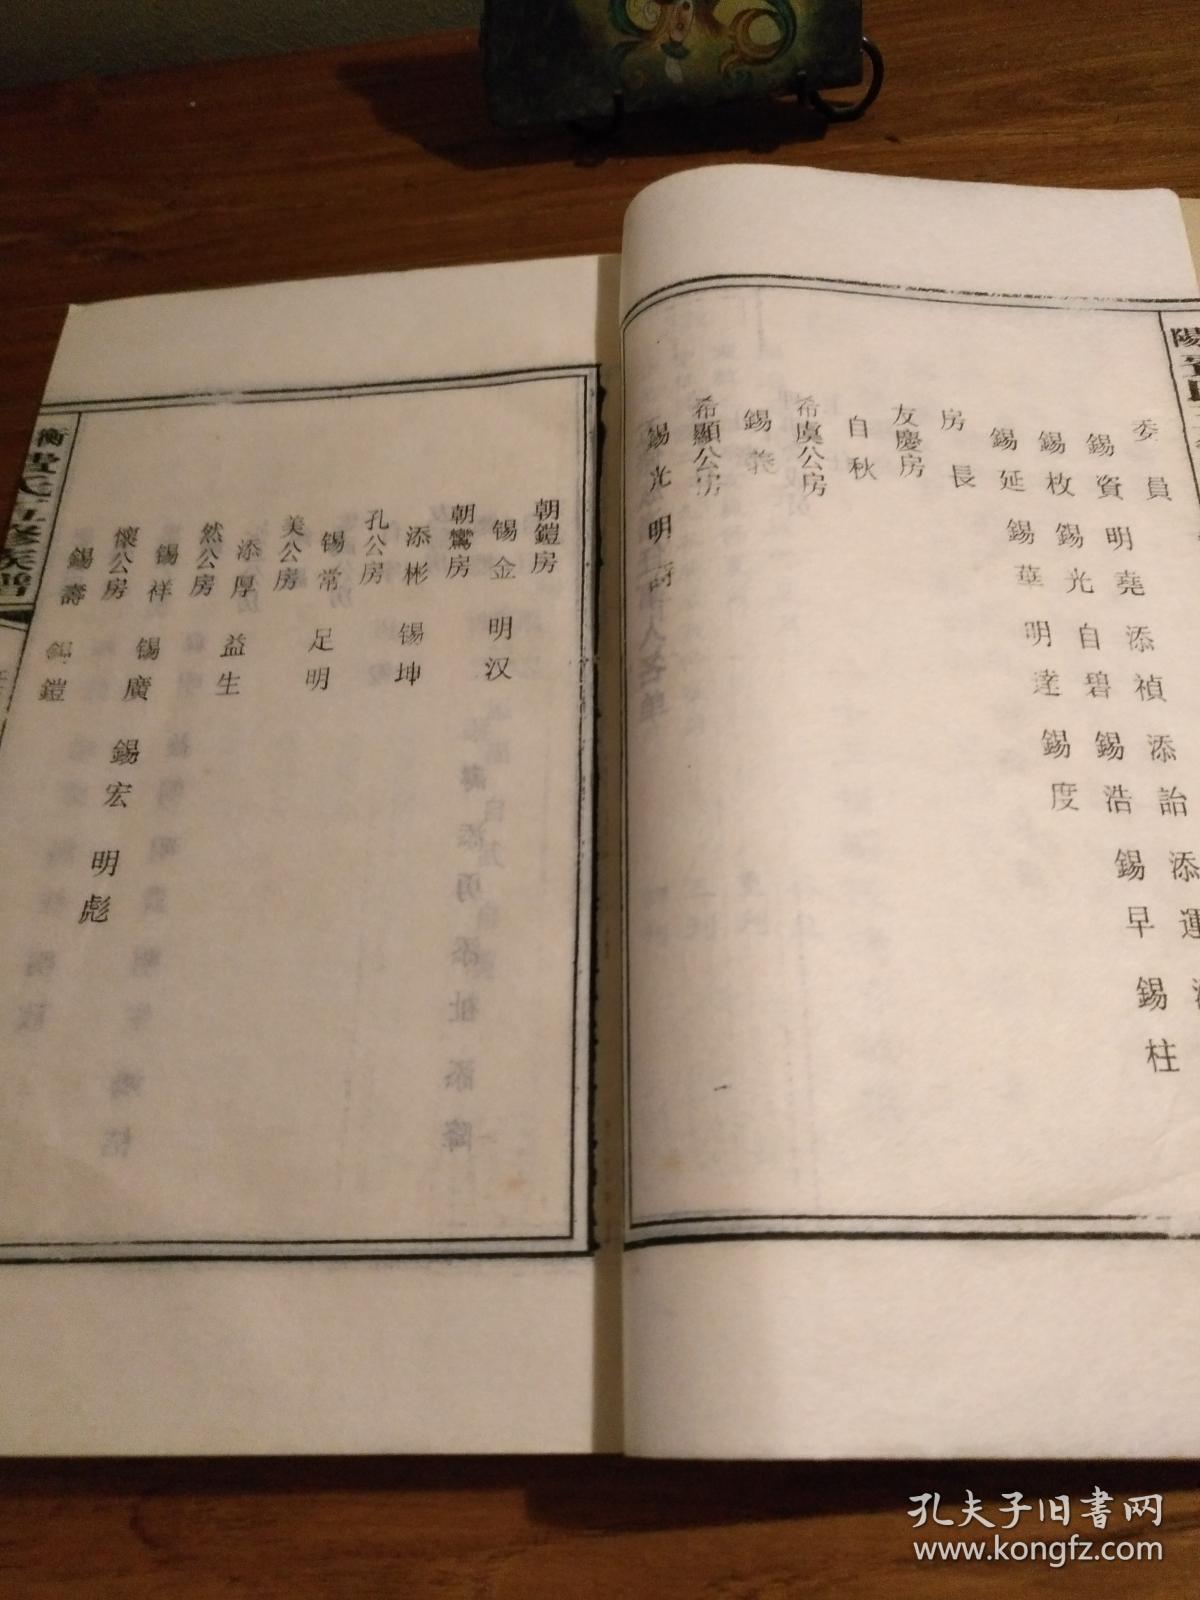 委員
錫資 明堯 添禎 添詒 添運
錫枚 錫光 自碧 錫浩 錫早 錫柱
錫延 錫華 明達 錫度
房長
友慶房
自秋
希虞公房
錫
希顯公房
錫光 明
朝鎧房
锡金 明汉
朝鸞房
添彬 锡坤
孔公房
锡常 足明
美公房
添厚 益生
然公房
锡祥 锡廣 錫宏 明彪
懷公房
錫壽 鎧
衡 氏五修族譜
陽
孔夫子旧书网
www.kongfz.com